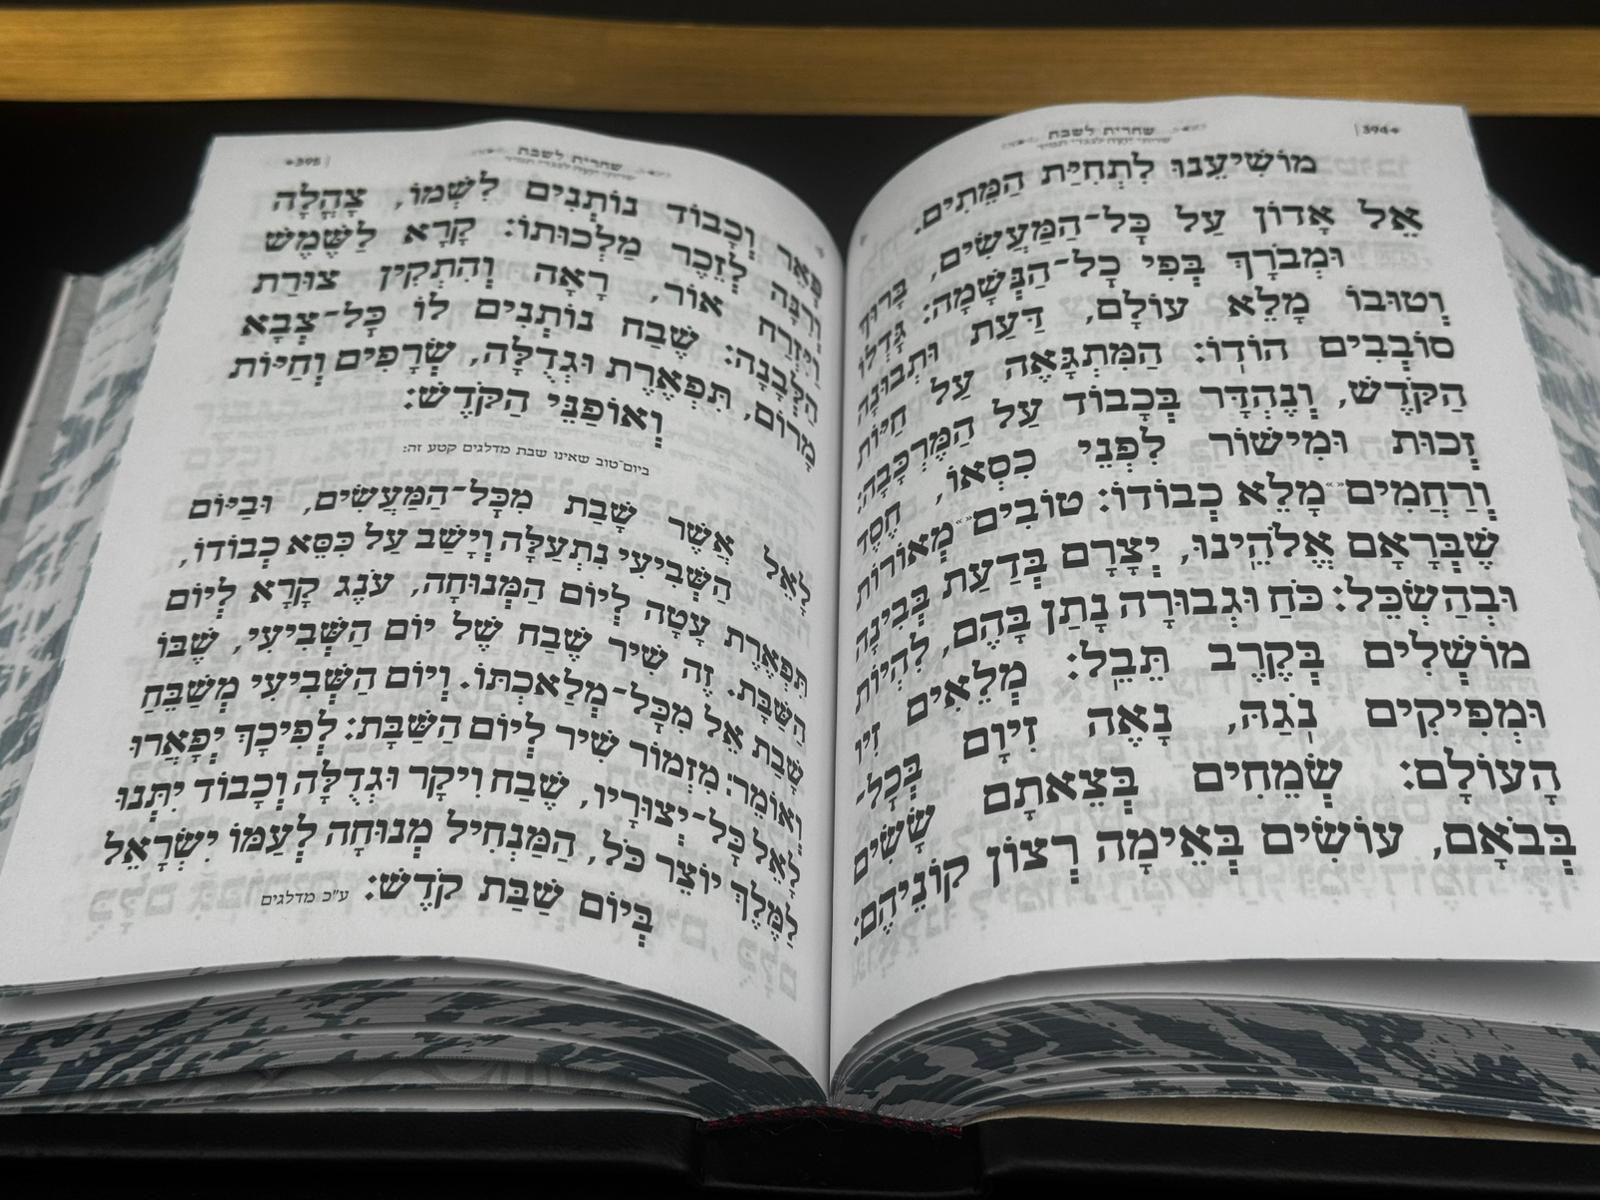 394
שחרית לשבת
מוֹשִׁיעֵנוּ לִתְחִיַּת הַמֵּתִים.
אֵל אָדוֹן עַל כָּל־הַמַּעֲשִׂים, בָּרוּךְ
וּמְבֹרָךְ בְּפִי כָל־הַנְּשָׁמָה: גָּדְלוֹ
וְטוּבוֹ מָלֵא עוֹלָם, דַּעַת וּתְבוּנָה
סוֹבְבִים הוֹדוֹ: הַמִּתְגָּאֶה עַל חַיּוֹת
הַקֹּדֶשׁ, וְנֶהְדָּר בְּכָבוֹד עַל הַמֶּרְכָּבָה:
זְכוּת וּמִישׁוֹר לִפְנֵי כִסְאוֹ, חֶסֶד
וְרַחֲמִים מָלֵא כְבוֹדוֹ: טוֹבִים מְאוֹרוֹת
שֶׁבְּרָאָם אֱלֹהֵינוּ, יְצָרָם בְּדַעַת בְּבִינָה
וּבְהַשְׂכֵּל: כֹּחַ וּגְבוּרָה נָתַן בָּהֶם, לִהְיוֹת
מוֹשְׁלִים בְּקֶרֶב תֵּבֵל: מְלֵאִים זִיו
וּמְפִיקִים נֹגַהּ, נָאֶה זִיוָם בְּכָל־
הָעוֹלָם: שְׂמֵחִים בְּצֵאתָם שָׂשִׂים
בְּבֹאָם, עוֹשִׂים בְּאֵימָה רְצוֹן קוֹנֵיהֶם:
395
שחרית לשבת
פְּאֵר וְכָבוֹד נוֹתְנִים לִשְׁמוֹ, צָהֳלָה
וְרִנָּה לְזֵכֶר מַלְכוּתוֹ: קָרָא לַשֶּׁמֶשׁ
וַיִּזְרַח אוֹר, רָאָה וְהִתְקִין צוּרַת
הַלְּבָנָה: שֶׁבַח נוֹתְנִים לוֹ כָּל־צְבָא
מָרוֹם, תִּפְאֶרֶת וּגְדֻלָּה, שְׂרָפִים וְחַיּוֹת
וְאוֹפַנֵּי הַקֹּדֶשׁ:
ביום־טוב שאינו שבת מדלגים קטע זה:
לָאֵל אֲשֶׁר שָׁבַת מִכָּל־הַמַּעֲשִׂים, וּבַיּוֹם
הַשְּׁבִיעִי נִתְעַלָּה וְיָשַׁב עַל כִּסֵּא כְבוֹדוֹ,
תִּפְאֶרֶת עָטָה לְיוֹם הַמְּנוּחָה, עֹנֶג קָרָא לְיוֹם
הַשַּׁבָּת. זֶה שִׁיר שֶׁבַח שֶׁל יוֹם הַשְּׁבִיעִי, שֶׁבּוֹ
שָׁבַת אֵל מִכָּל־מְלַאכְתּוֹ. וְיוֹם הַשְּׁבִיעִי מְשַׁבֵּחַ
וְאוֹמֵר: מִזְמוֹר שִׁיר לְיוֹם הַשַּׁבָּת: לְפִיכָךְ יְפָאֲרוּ
לָאֵל כָּל־יְצוּרָיו, שֶׁבַח וִיקָר וּגְדֻלָּה וְכָבוֹד יִתְּנוּ
לַמֶּלֶךְ יוֹצֵר כֹּל, הַמַּנְחִיל מְנוּחָה לְעַמּוֹ יִשְׂרָאֵל
בְּיוֹם שַׁבַּת קֹדֶשׁ: ע"כ מדלגים